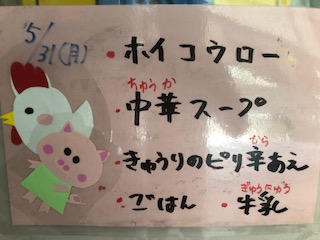 5/31(月)
・ホイコウロー
ちゅうか
・中華スープ
から
・きゅうりのピリ辛あえ
ぎゅうにゅう
・ごはん ・牛乳